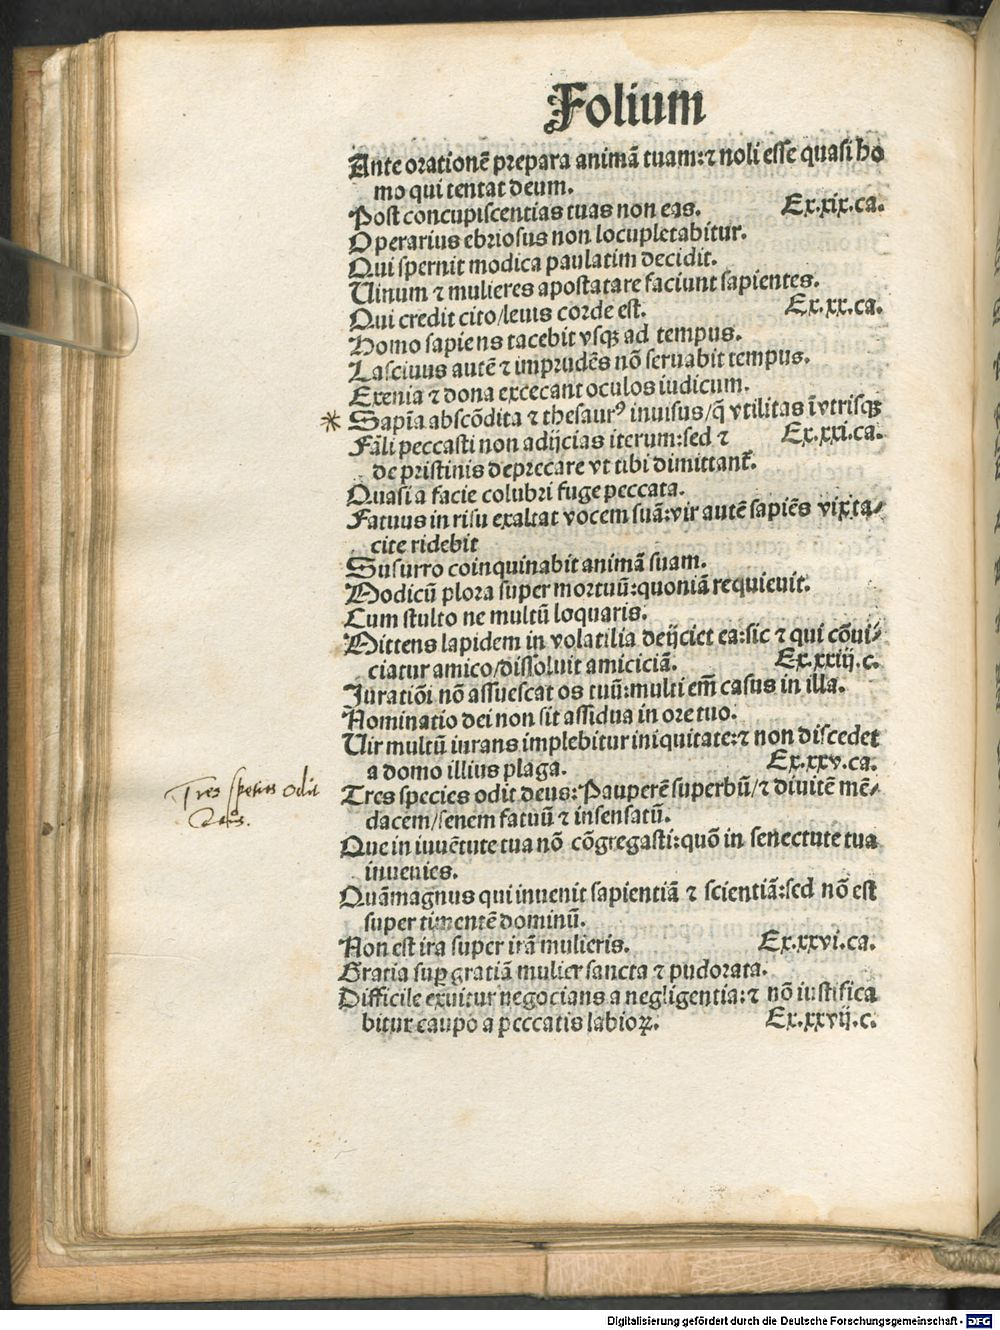 Folium
Ante orationẽ prepara animã tuam:⁊ noli esse quasi ho
mo qui tentat deum.
Post concupiscentias tuas non eas. Ex.xix.ca.
Operarius ebriosus non locupletabitur.
Qui spernit modica paulatim decidit.
Uinum ⁊ mulieres apostatare faciunt sapientes.
Qui credit cito/leuis corde est. Ex.xx.ca.
Homo sapiens tacebit vsqꝫ ad tempus.
Lasciuus autẽ ⁊ imprudẽs nõ seruabit tempus.
Exenia ⁊ dona excecant oculos iudicum.
* Sapĩa abscõdita ⁊ thesaurꝰ inuisus/q̃ vtilitas ĩ vtrisqꝫ
Fãli peccasti non adijcias iterum:sed ⁊ Ex.xxi.ca.
de pristinis deprecare vt tibi dimittant᷑.
Quasi a facie colubri fuge peccata.
Fatuus in risu exaltat vocem suã:vir autẽ sapiẽs vix ta⸗
cite ridebit
Susurro coinquinabit animã suam.
Modicũ plora super mortuũ:quoniã requieuit.
Cum stulto ne multũ loquaris.
Mittens lapidem in volatilia deijciet ea:sic ⁊ qui cõui⸗
ciatur amico/dissoluit amiciciã. Ex.xxiij.c.
Iuratiõi nõ assuescat os tuũ:multi em̃ casus in illa.
Nominatio dei non sit assidua in ore tuo.
Uir multũ iurans implebitur iniquitate:⁊ non discedet
a domo illius plaga. Ex.xxv.ca.
Tres species odit
deus.
Tres species odit deus: Pauperẽ superbũ/⁊ diuitẽ mẽ⸗
dacem/senem fatuũ ⁊ insensatũ.
Que in iuuẽtute tua nõ cõgregasti:quõ in senectute tua
inuenies.
Quã magnus qui inuenit sapientiã ⁊ scientiã:sed nõ est
super timentẽ dominũ.
Non est ira super irã mulieris. Ex.xxvi.ca.
Gratia suꝑ gratiã mulier sancta ⁊ pudorata.
Difficile exuitur negocians a negligentia:⁊ nõ iustifica
bitur caupo a peccatis labioꝝ. Ex.xxvij.c.
Digitalisierung gefördert durch die Deutsche Forschungsgemeinschaft - DFG